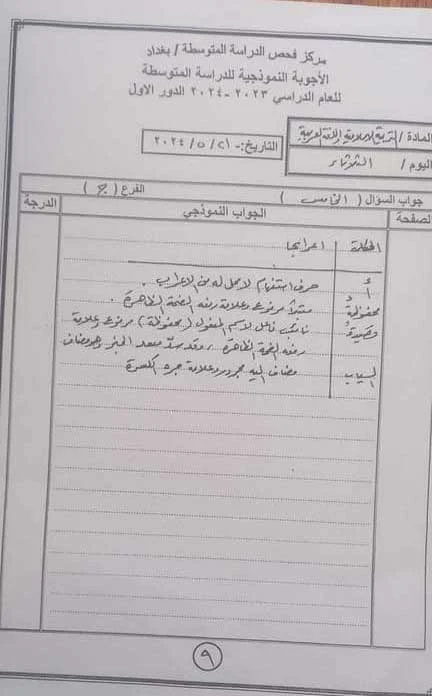 مركز فحص الدراسة المتوسطة / بغداد
الأجوبة النموذجية للدراسة المتوسطة
للعام الدراسي ٢٠٢٣ - ٢٠٢٤ الدور الاول
المادة / التربية الاسلامية واللغة العربية
التاريخ:- ٢١ / ٥ / ٢٠٢٤
اليوم / الثلاثاء
جواب السؤال ( الخامس ) الفرع ( ج )
الصفحة الجواب النموذجي الدرجة
الكلمة اعرابها
أ حرف استفهام لا محل له من الاعراب .
محفوظة مبتدأ مرفوع وعلامة رفعه الضمة الظاهرة .
قصيدة نائب فاعل لاسم المفعول (محفوظة) مرفوع وعلامة
رفعه الضمة الظاهرة ، وقد سدّ مسد الخبر وهو مضاف
السياب مضاف اليه مجرور وعلامة جره الكسرة
٩